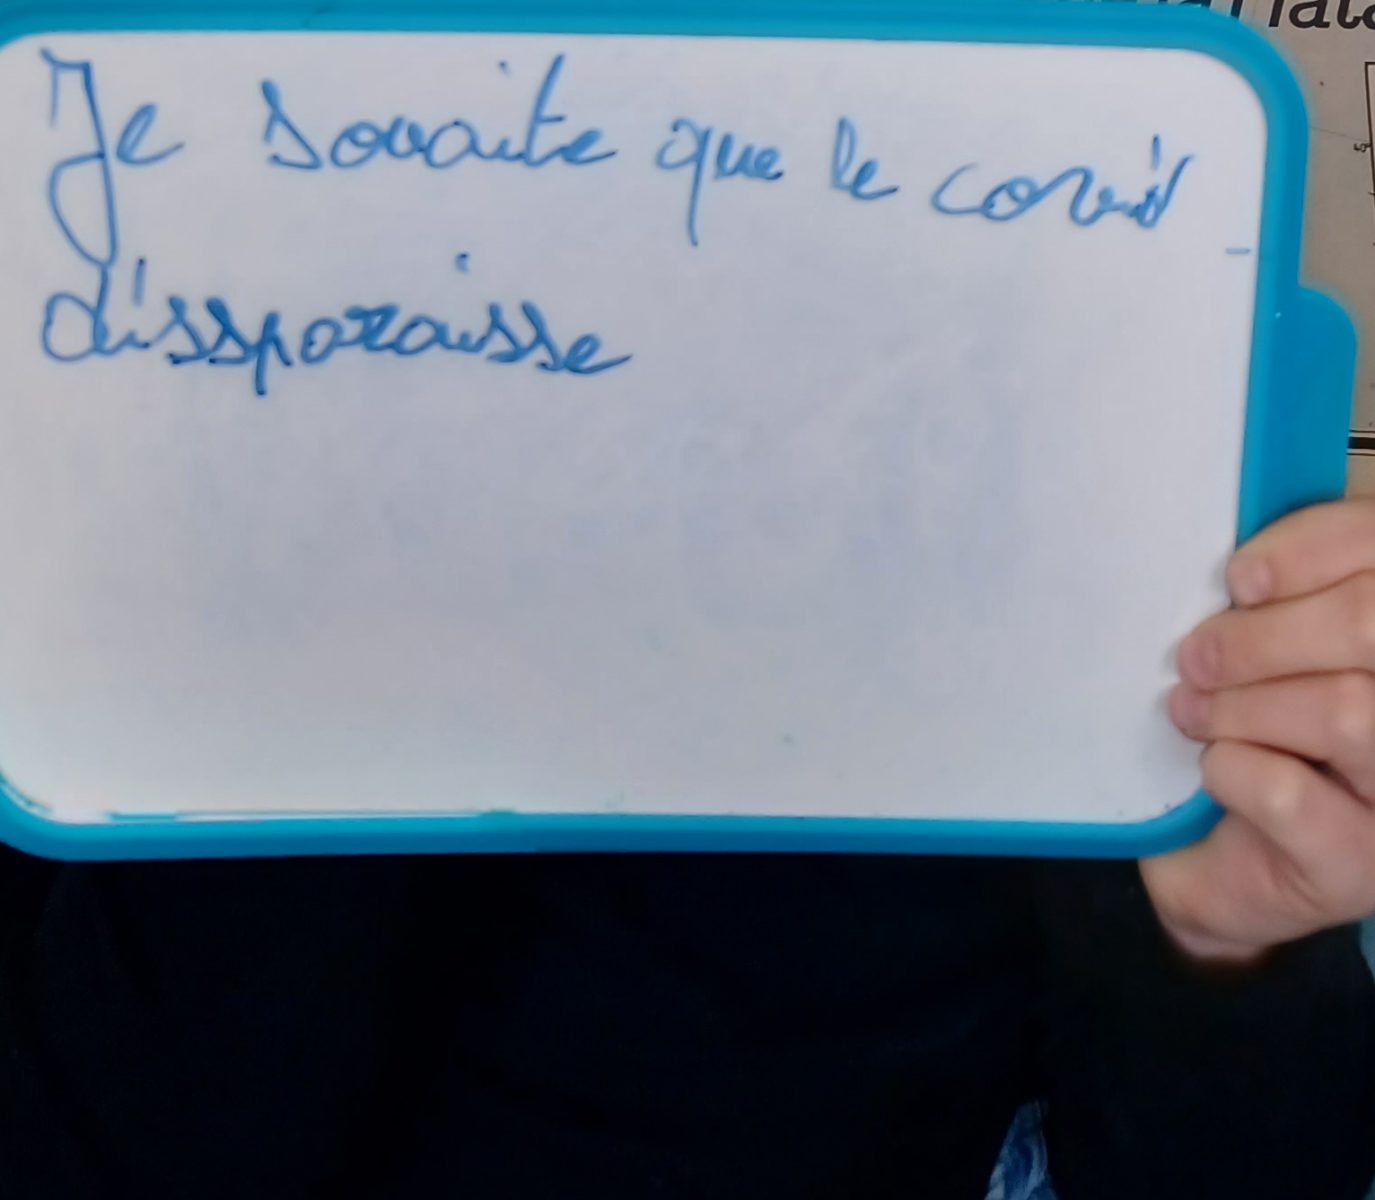 Je souaite que le covid
dissparaisse